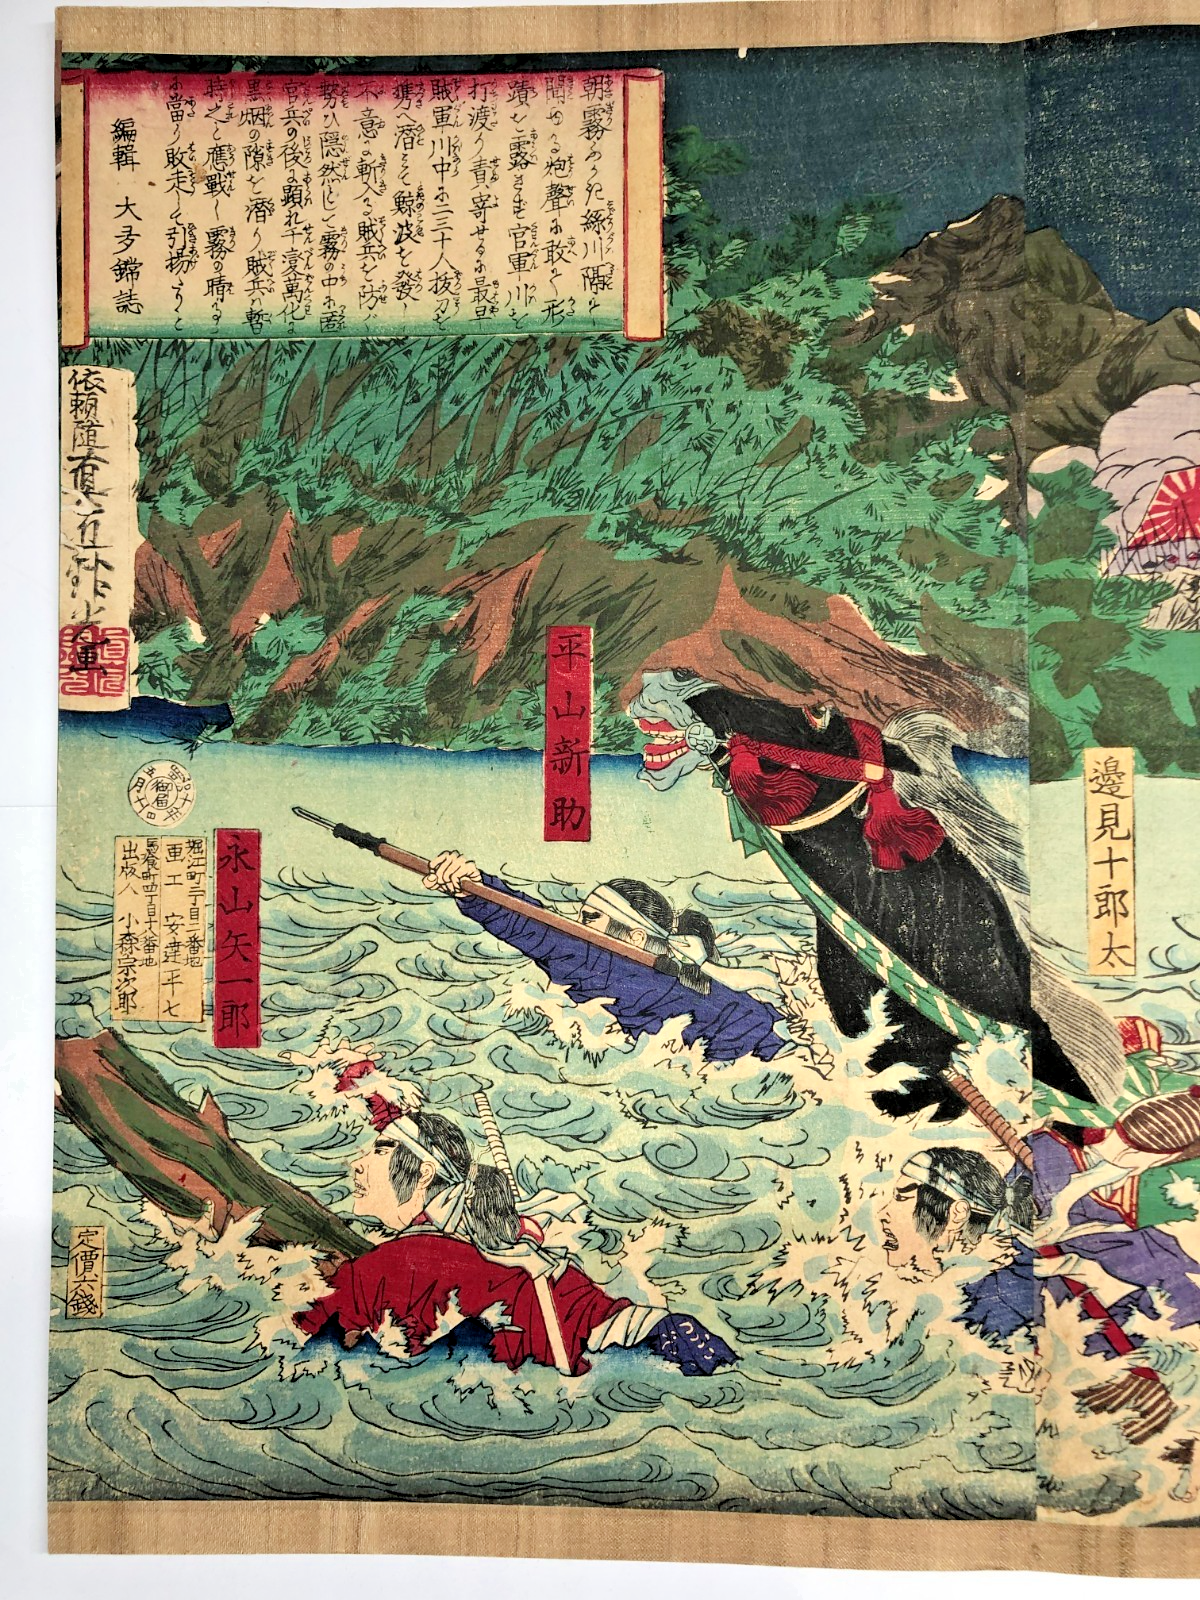 朝霧ふかき絲川隔と
間ゆる炮聲に敢て形
蹟を露さず官軍川を
打渡り責寄せるに最早
賊軍川中に二三十人抜刀を
携へ潜みて鯨波を發し
不意に斬入る賊兵を防ぐ
勢ひ隠然として霧の中に匿
官兵の後に顕れ千変萬化に
黒烟の隙を潜り賊兵ハ暫
時之と應戰し霧の晴るゝ
に當り敗走して引揚たりと
編輯 大夛鐺誌
依頼随
平山新助
邊見十郎太
永山矢一郎
明治十年
御届
五月十日
堀江町二丁目二番地
画工 安達平七
馬喰町四丁目十番地
出版人 小森宗次郎
定價六錢